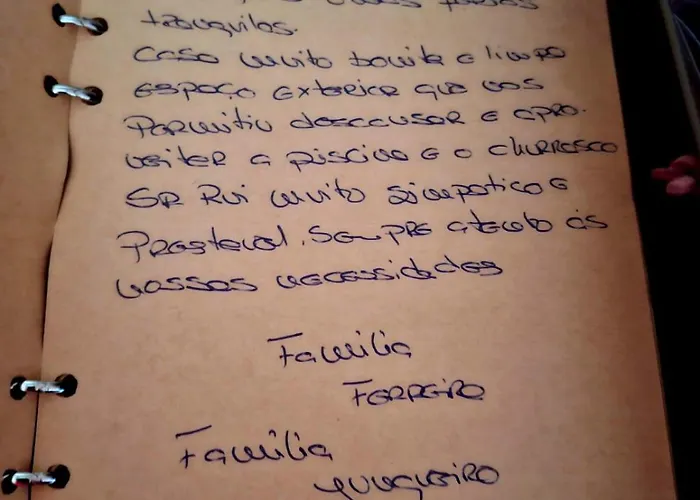 tranquilos.
Casa muito bonita e limpa
espaço exterior que nos
Permitiu descansar e apro-
veitar a piscina e o churrasco
SR Rui muito simpatico e
Prestavel. Sempre atento às
nossas necessidades
Familia
Ferreira
Familia